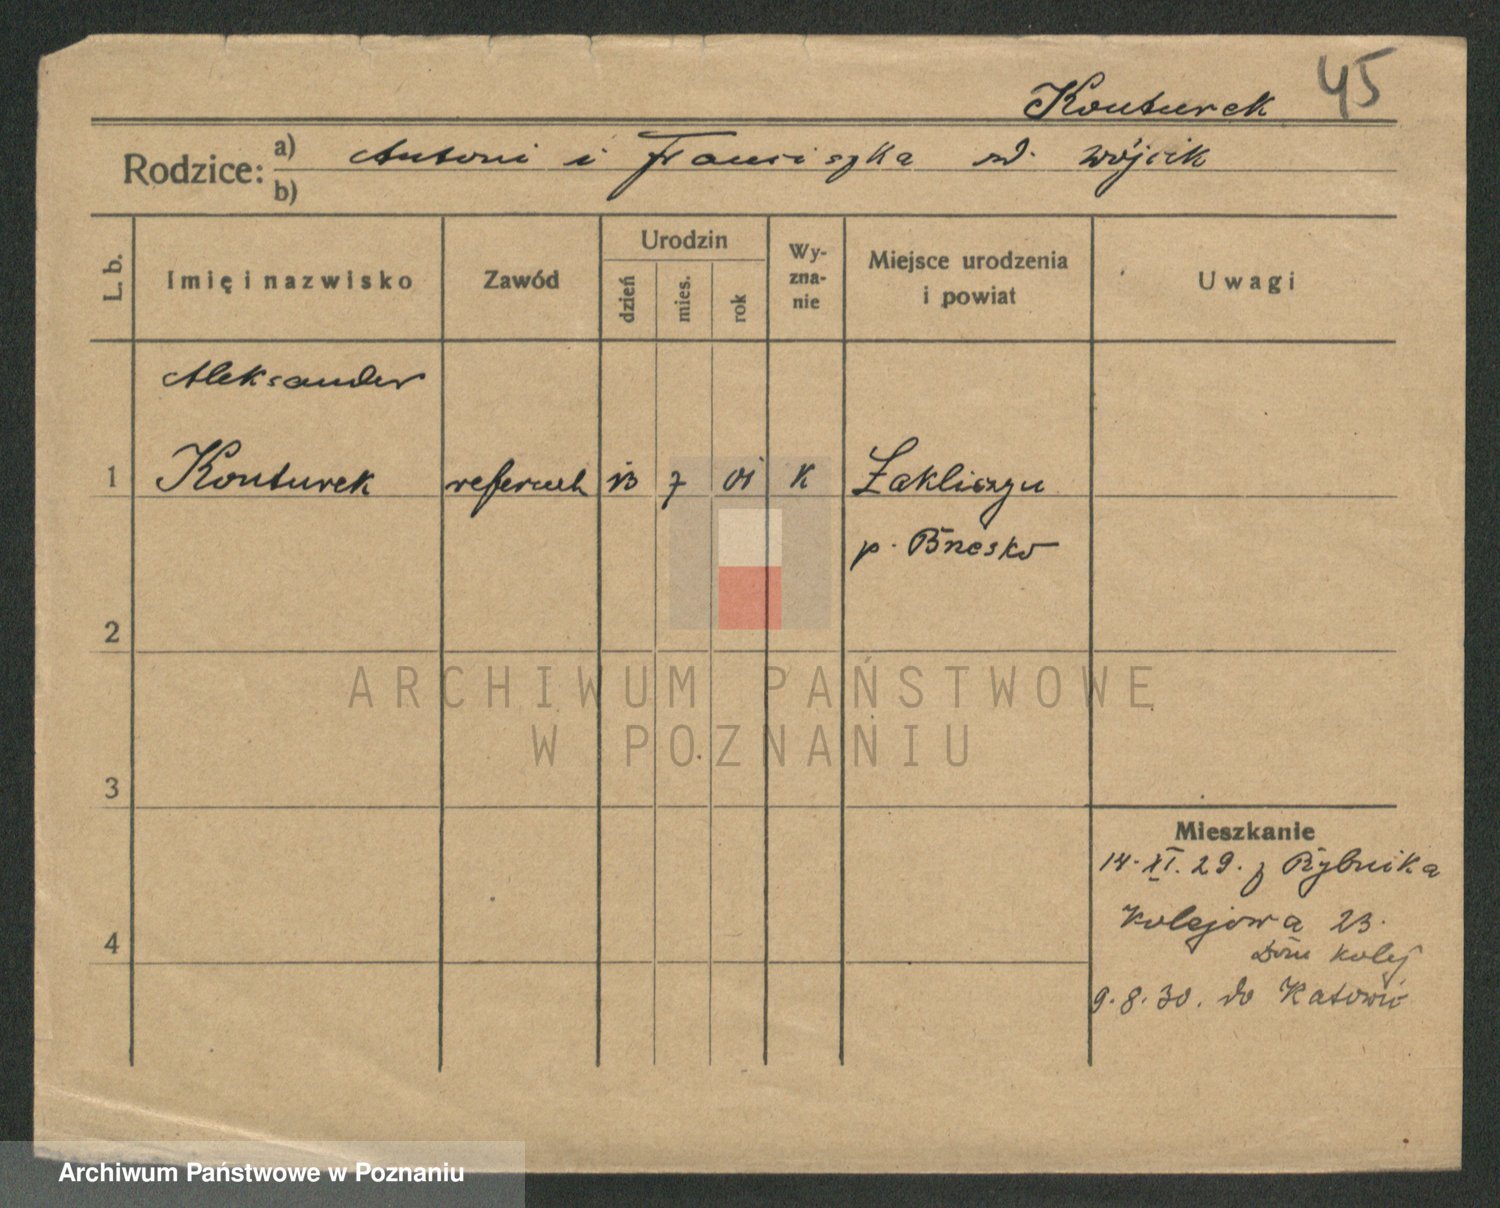 45
Konturek
Rodzice: a) Antoni i Franciszka zd. Wójcik
b)
L. b.
Imię i nazwisko
Zawód
Urodzin
dzień
mies.
rok
Wy-
zna-
nie
Miejsce urodzenia
i powiat
Uwagi
Aleksander
1 Konturek 7 01 K Zakliczyn
p. Brzesko
2
3
4
Mieszkanie
14. XI. 29. z Rybnika
Kolejowa 23.
Dom kolej
9. 8. 30. do Katowic
ARCHIWUM PAŃSTWOWE
W POZNANIU
Archiwum Państwowe w Poznaniu